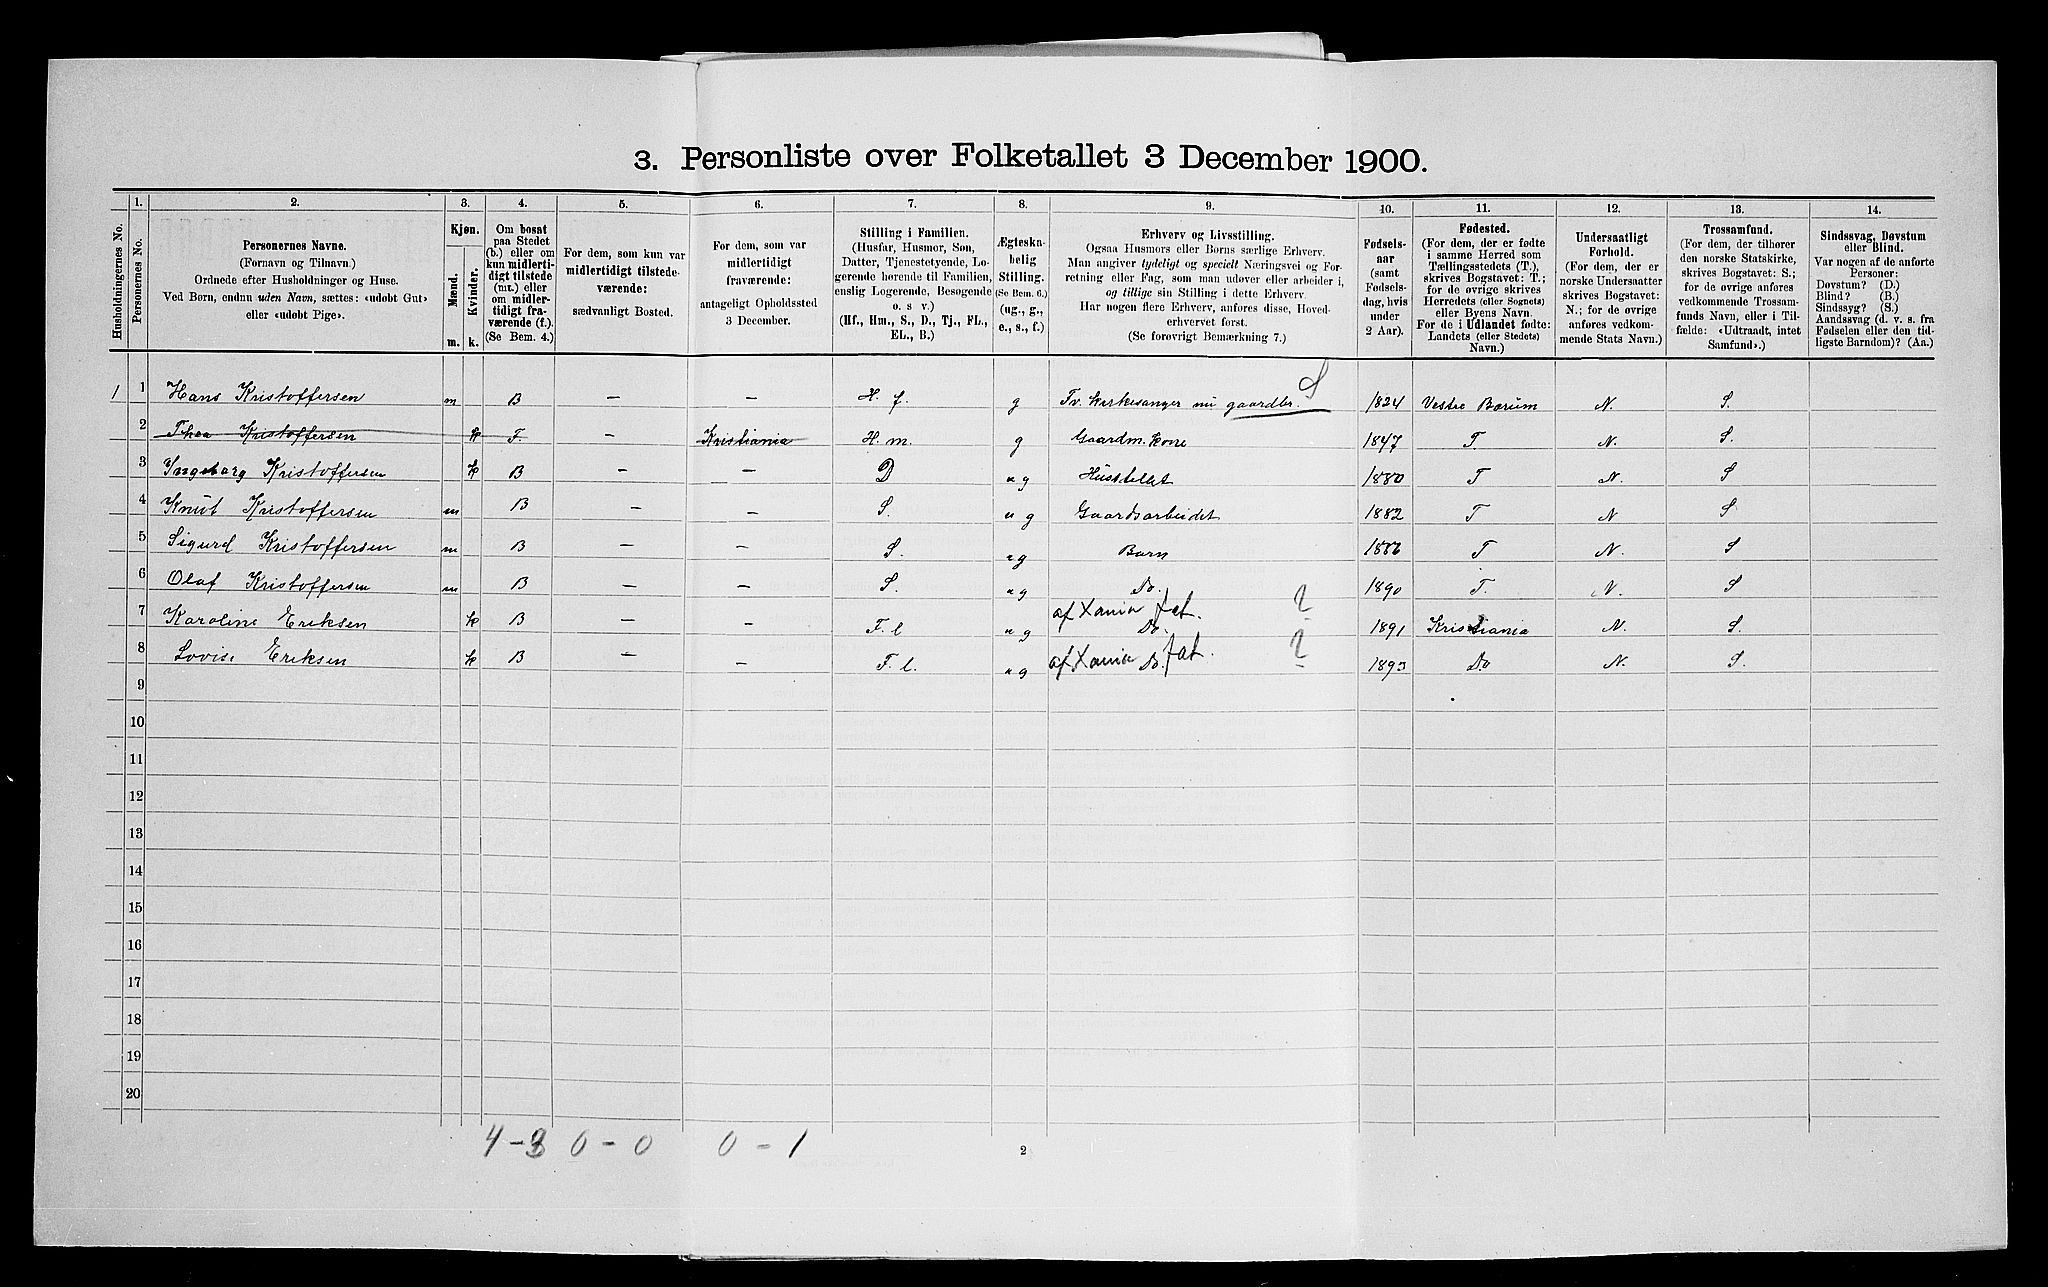 3. Personliste over Folketallet 3 December 1900.
Husholdningernes No.
1.
Personernes No.
2.
Personernes Navne.
(Fornavn og Tilnavn.)
Ordnede efter Husholdninger og Huse.
Ved Børn, endnu uden Navn, sættes: «udøbt Gut»
eller «udøbt Pige».
3.
Kjøn.
Mænd.
Kvinder.
m. k.
4.
Om bosat
paa Stedet
(b.) eller om
kun midlerti-
digt tilstede
(mt.) eller
om midler-
tidigt fra-
værende (f.).
(Se Bem. 4.)
5.
For dem, som kun var
midlertidigt tilstede-
værende:
sædvanligt Bosted.
6.
For dem, som var
midlertidigt
fraværende:
antageligt Opholdssted
3 December.
7.
Stilling i Familien.
(Husfar, Husmor, Søn,
Datter, Tjenestetyende, Lo-
gerende hørende til Familien,
enslig Logerende, Besøgende
o. s v.)
(Hf., Hm., S., D., Tj., FL.,
EL., B.)
8.
Ægteska-
belig
Stilling.
(Se Bem. 6.)
(ug., g.,
e., s., f.)
9.
Erhverv og Livsstilling.
Ogsaa Husmors eller Børns særlige Erhverv.
Man angiver tydeligt og specielt Næringsvei og For-
retning eller Fag, som man udøver eller arbeider i,
og tillige sin Stilling i dette Erhverv.
Har nogen flere Erhverv, anføres disse, Hoved-
erhvervet først.
(Se forøvrigt Bemærkning 7.)
10.
Fødsels-
aar
(samt
Fødsels-
dag, hvis
under
2 Aar).
11.
Fødested.
(For dem, der er fødte
i samme Herred som
Tællingsstedets (T.),
skrives Bogstavet: T.;
for de øvrige skrives
Herredets (eller Sognets)
eller Byens Navn.
For de i Udlandet fødte:
Landets (eller Stedets)
Navn.)
12.
Undersaatligt
Forhold.
(For dem, der er
norske Undersaatter
skrives Bogstavet:
N.; for de øvrige
anføres vedkom-
mende Stats Navn.)
13.
Trossamfund.
(For dem, der tilhører
den norske Statskirke,
skrives Bogstavet: S.;
for de øvrige anføres
vedkommende Trossam-
funds Navn, eller i Til-
fælde: «Udtraadt, intet
Samfund».)
14.
Sindssvag, Døvstum
eller Blind.
Var nogen af de anførte
Personer:
Døvstum? (D.)
Blind? (B.)
Sindssyg? (S.)
Aandssvag (d. v. s. fra
Fødselen eller den tid-
ligste Barndom)? (Aa.)
1 1 Hans Kristoffersen m B — — H. f. g Fv. Kirkesanger nu gaardbr. S 1824 Vestre Bærum N. S.
2 Thea Kristoffersen k F. — Kristiania H. m. g Gaardm. Kone 1847 T. N. S.
3 Ingeborg Kristoffersen k B — — D ug Husstellet 1880 T N. S
4 Knut Kristoffersen m B — — S. ug Gaardsarbeidet 1882 T N S
5 Sigurd Kristoffersen m B — — S. ug Barn 1886 T N. S
6 Olaf Kristoffersen m B — — S. ug Do. 1890 T. N. S
7 Karoline Eriksen k B — — F. l ug af Xania fat. Do. ? 1891 Kristiania N. S.
8 Lovise Eriksen k B — — F. l. ug af Xania fat. Do. ? 1893 Do N. S.
9
10
11
12
13
14
15
16
17
18
19
20
4 - 3 0 - 0 0 - 1
2